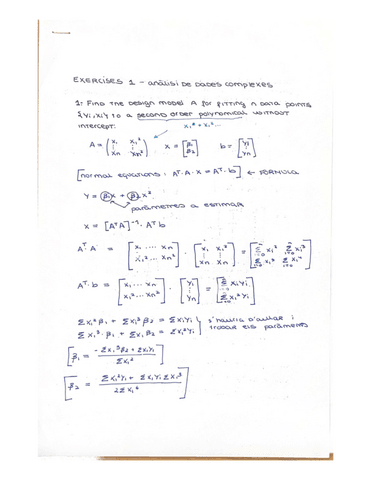 EXERCISES 1 - anàlisi de dades complexes
1. Find the design model A for fitting n data points
{yi, xi} to a second order polynomical without
intercept:
x₁² + x₁...
A = (x₁ x₁² ⋮ ⋮ xn xn²) x = [β₁ β₂] b = [y₁ ⋮ yn]
[normal equations: Aᵀ·A·x = Aᵀ·b] ← FORMULA
Y = β₁x + β₂x²
paràmetres a estimar
x = [AᵀA]⁻¹·Aᵀb
Aᵀ·A = [x₁ ... xn x₁² ... xn²] · [x₁ x₁² ⋮ ⋮ xn xn²] = [Σxi² Σxi³ Σxi³ Σxi⁴]
Aᵀ·b = [x₁ ... xn x₁² ... xn²] · [y₁ ⋮ yn] = [Σxiyi Σxi²yi]
Σxi²β₁ + Σxi³β₂ = Σxiyi
Σxi³·β₁ + Σxi⁴β₂ = Σxi²yi
s'hauria d'aïllar i
trobar els paràmetres
β₁ = -Σxi³β₂ + Σxiyi / Σxi²
β₂ = Σxi²yi + Σxiyi Σxi³ / 2Σxi²